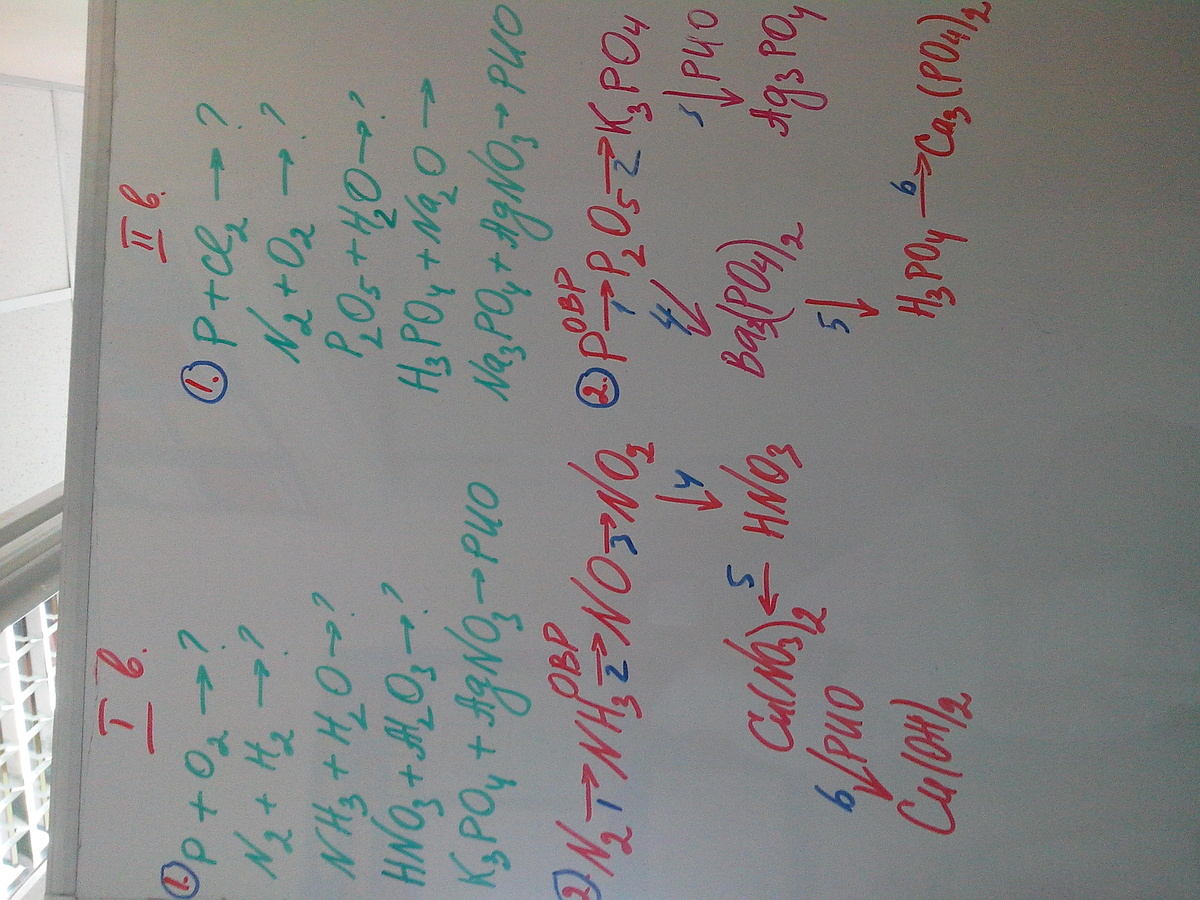 I в.
1. P + O₂ → ?
N₂ + H₂ → ?
NH₃ + H₂O → ?
HNO₃ + Al₂O₃ → ?
K₃PO₄ + AgNO₃ → РИО
2) N₂ →1 NH₃ ОВР →2 NO →3 NO₂
↓ 4
Cu(NO₃)₂ ←5 HNO₃
6 ↓ РИО
Cu(OH)₂
II в.
1. P + Cl₂ → ?
N₂ + O₂ → ?
P₂O₅ + H₂O → ?
H₃PO₄ + Na₂O →
Na₃PO₄ + AgNO₃ → РИО
2. P ОВР →1 P₂O₅ →2 K₃PO₄
4 ↙ 3 ↓ РИО
Ba₃(PO₄)₂ Ag₃PO₄
5 ↓
H₃PO₄ →6 Ca₃(PO₄)₂